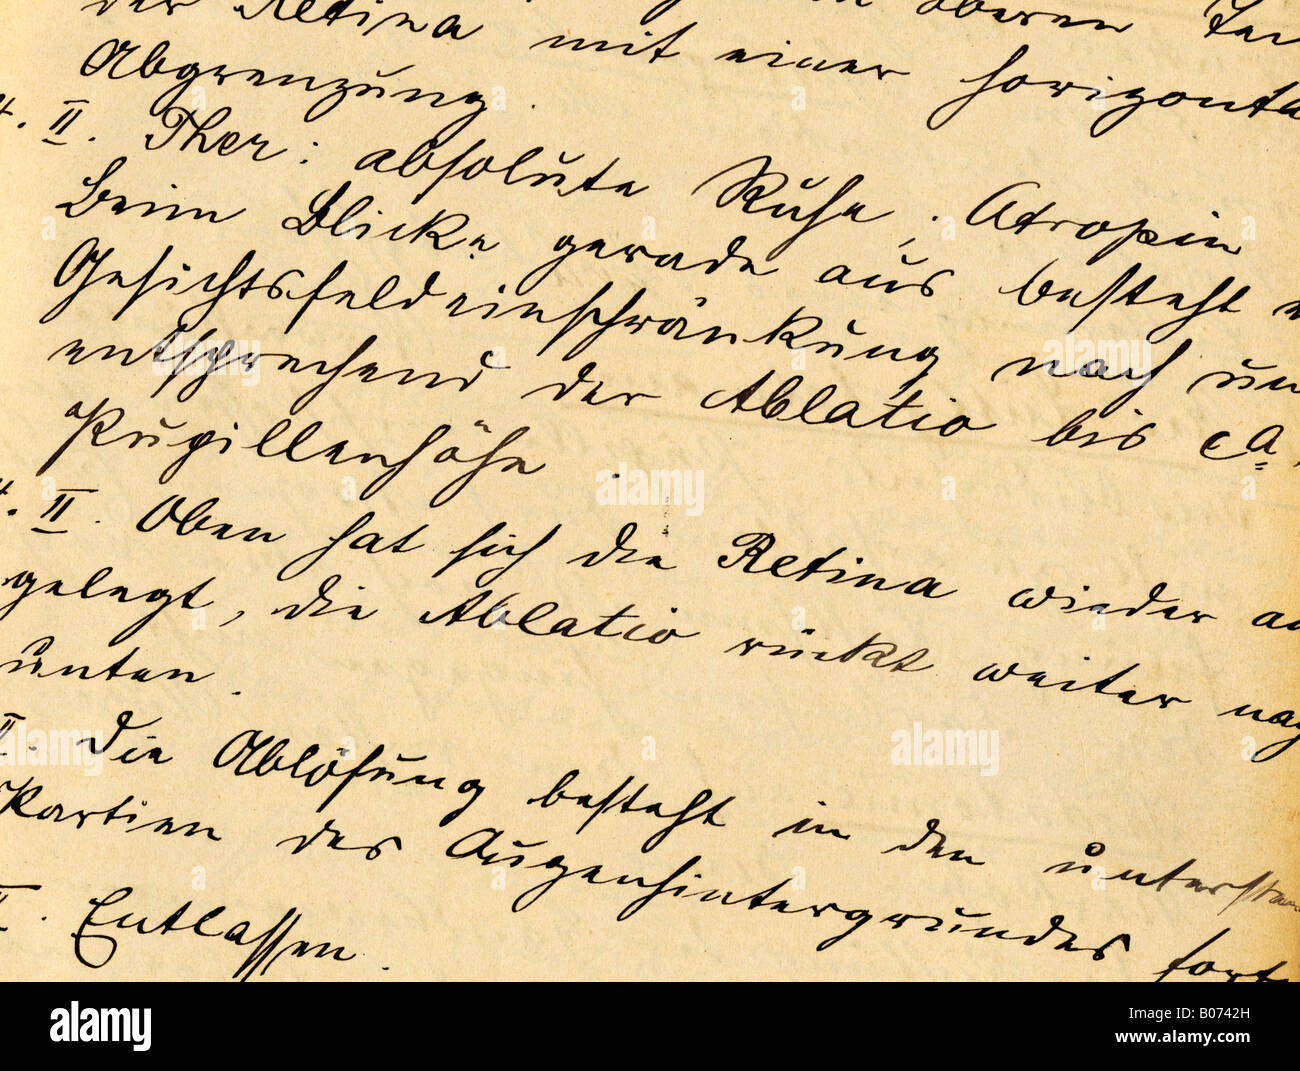 der Retina oberen
Abgrenzung. mit einer horizonta
4. II. Ther: absolute Ruhe, Atropin
Beim Blicke gerade aus besteht
Gesichtsfeldeinschränkung nach un
entsprechend der Ablatio bis ca.
Pupillenhöhe.
II. Oben hat sich die Retina wieder an
gelegt, die Ablatio rückt weiter nach
unten.
II. Die Ablösung besteht in den untersten
Partien des Augenhintergrundes fort
II. Entlassen.
alamy
Image ID: B0742H
www.alamy.com